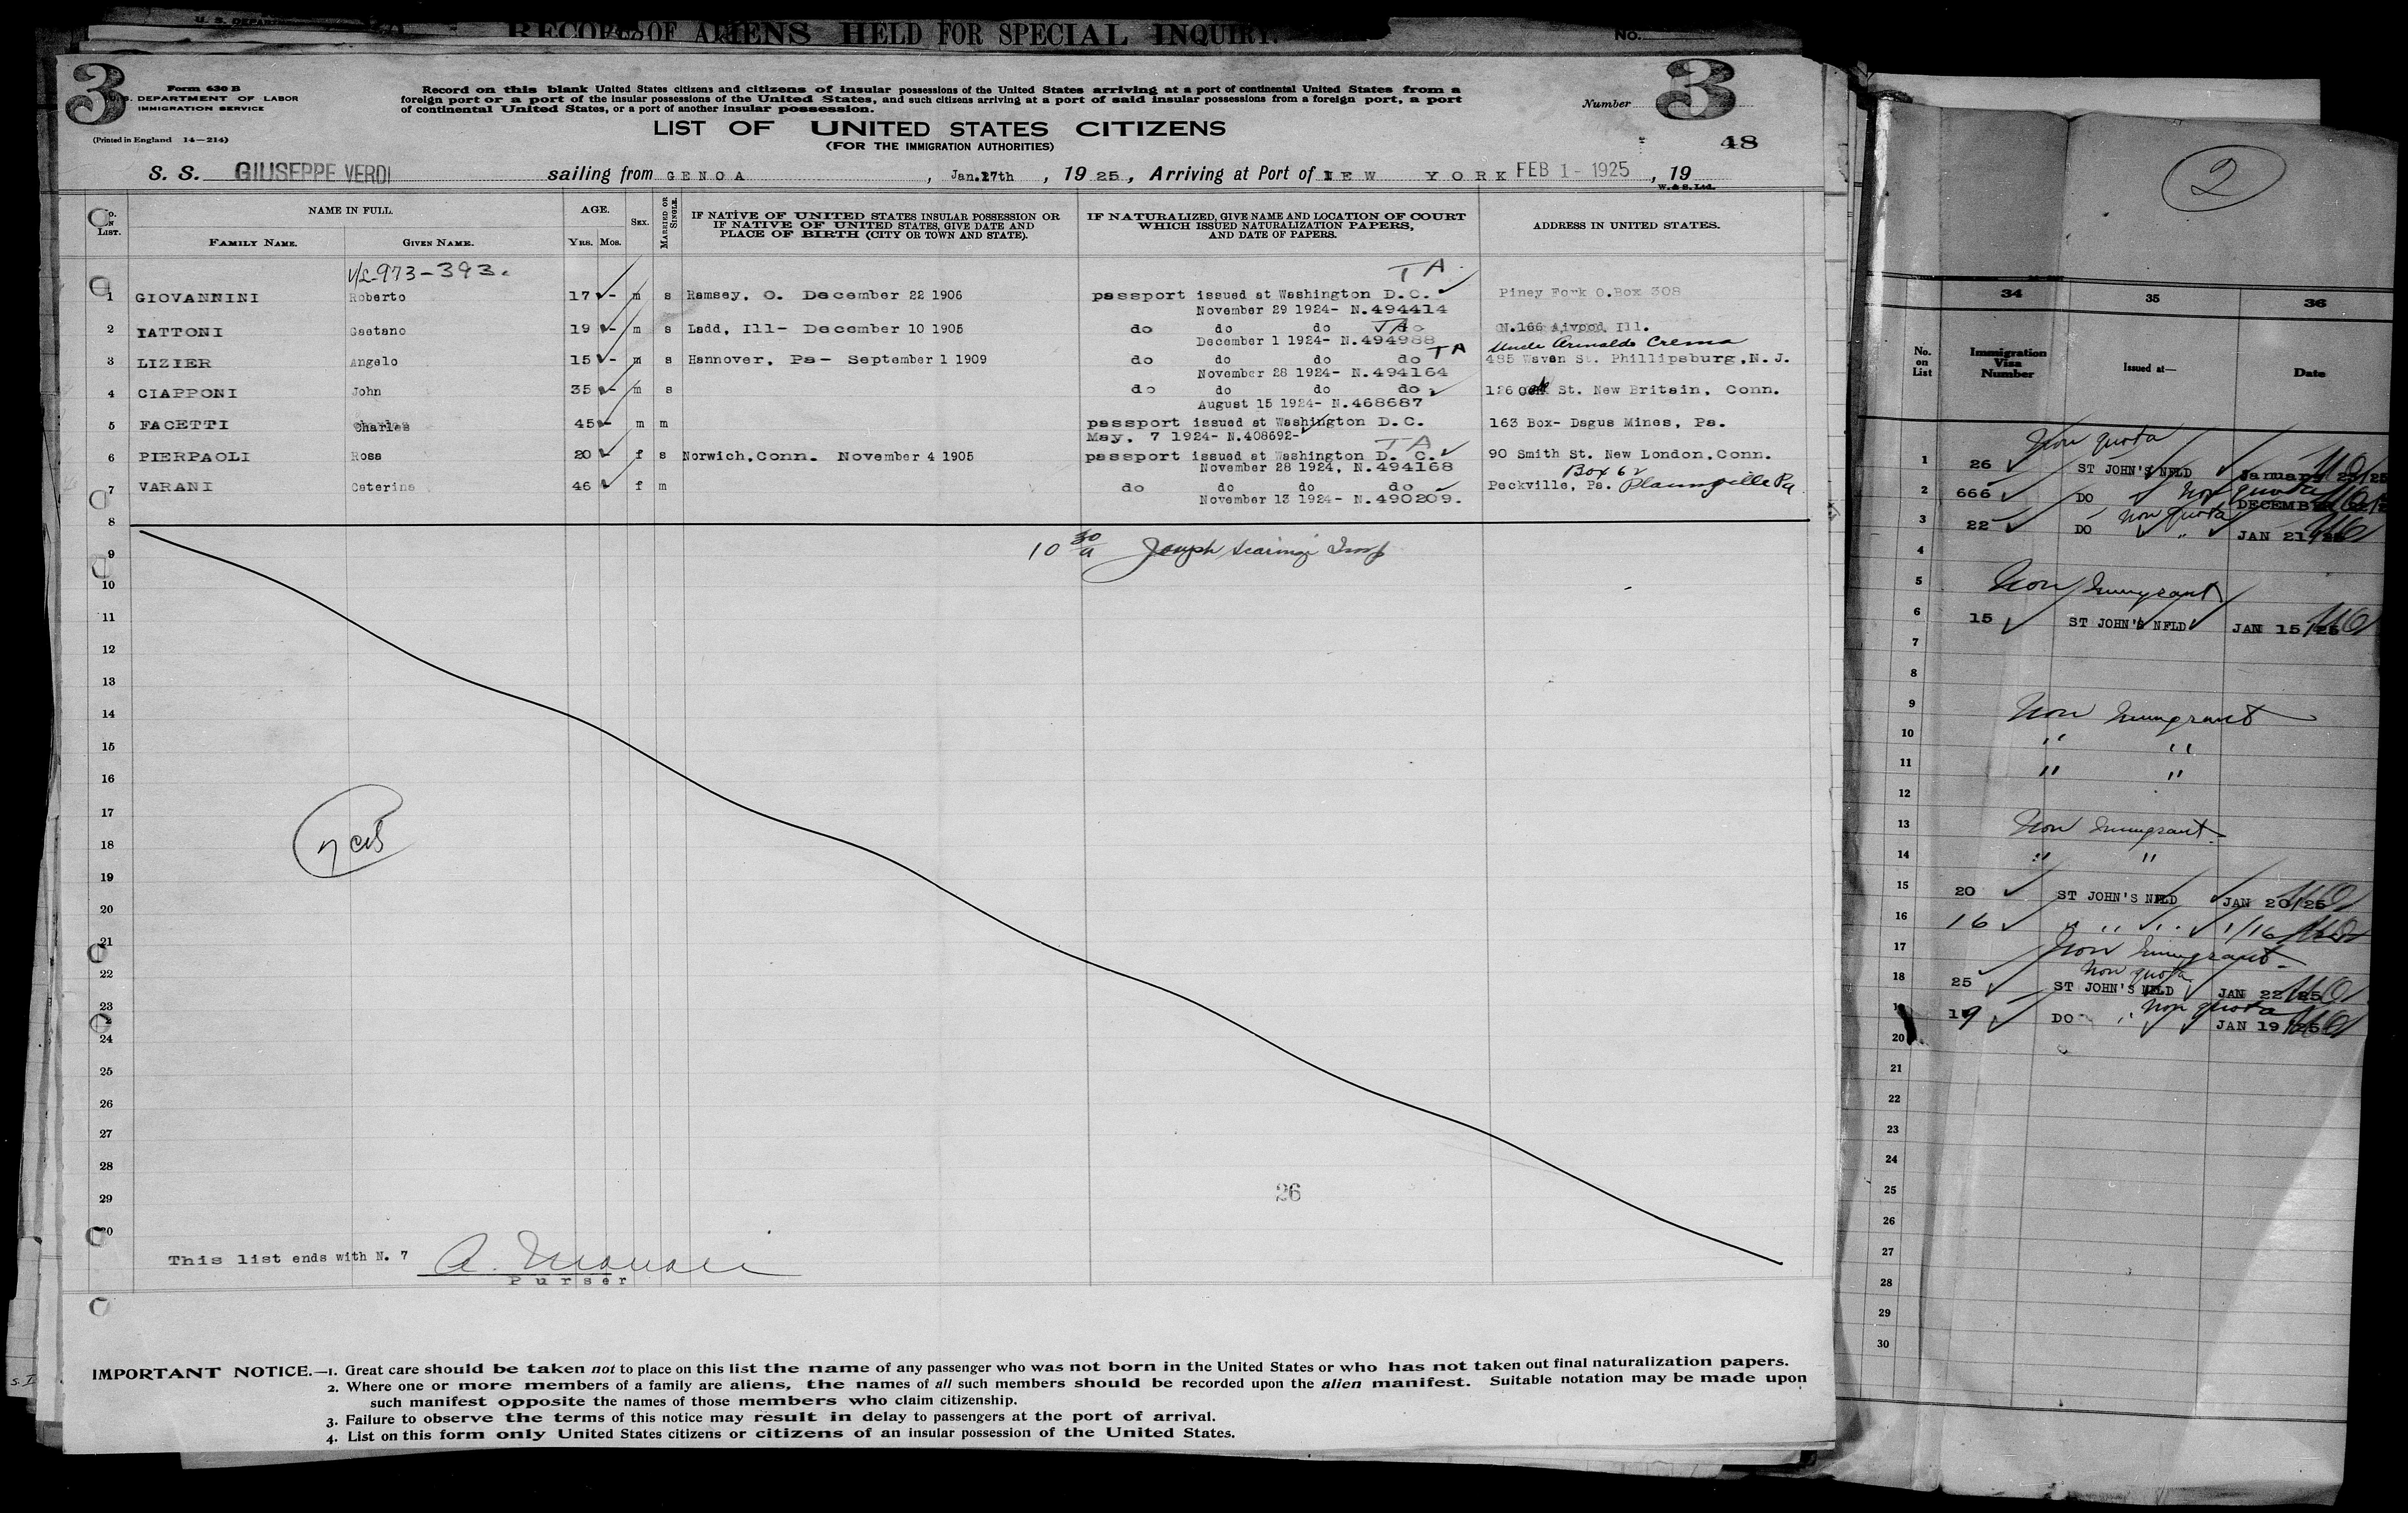 RECORD OF ALIENS HELD FOR SPECIAL INQUIRY.
No.
3
3
Form 630 B
U.S. DEPARTMENT OF LABOR
IMMIGRATION SERVICE
(Printed in England 14—214)
Record on this blank United States citizens and citizens of insular possessions of the United States arriving at a port of continental United States from a
foreign port or a port of the insular possessions of the United States, and such citizens arriving at a port of said insular possessions from a foreign port, a port
of continental United States, or a port of another insular possession.
Number
LIST OF UNITED STATES CITIZENS
(FOR THE IMMIGRATION AUTHORITIES)
48
S. S. GIUSEPPE VERDI sailing from GENOA, Jan.27th, 1925, Arriving at Port of NEW YORK FEB 1 - 1925, 19
W. & S. Ltd.
No. ON LIST.
NAME IN FULL.
FAMILY NAME. GIVEN NAME.
AGE.
YRS. MOS.
SEX.
MARRIED OR SINGLE.
IF NATIVE OF UNITED STATES INSULAR POSSESSION OR
IF NATIVE OF UNITED STATES, GIVE DATE AND
PLACE OF BIRTH (CITY OR TOWN AND STATE).
IF NATURALIZED, GIVE NAME AND LOCATION OF COURT
WHICH ISSUED NATURALIZATION PAPERS,
AND DATE OF PAPERS.
ADDRESS IN UNITED STATES.
V/L-973-393.
TA
1 GIOVANNINI Roberto 17 - m s Ramsey, O. December 22 1906 passport issued at Washington D.C. Piney Fork O.Box 308
November 29 1924- N.494414
2 IATTONI Gaetano 19 - m s Ladd, Ill- December 10 1905 do do do do TA N.166 Ill.
December 1 1924- N.494988
Uncle Arinaldo Crema
3 LIZIER Angelo 15 - m s Hannover, Pa- September 1 1909 do do do do TA 485 St. Phillipsburg, N.J.
November 28 1924- N.494164
4 CIAPPONI John 35 - m s do do do do St. New Britain, Conn.
August 15 1924- N.468687
5 FACETTI Charles 45 - m m passport issued at Washington D.C. 163 Box- Dagus Mines, Pa.
May, 7 1924- N.408692-
TA
6 PIERPAOLI Rosa 20 - f s Norwich,Conn. November 4 1905 passport issued at Washington D. C. 90 Smith St. New London,Conn.
November 28 1924, N.494168
Box 62
7 VARANI Caterina 46 f m do do do do Peckville, Pa. Plainsville Pa
November 13 1924- N.490209.
8
10 30/a Joseph Insp
9
10
11
12
13
14
15
16
17
18
19
20
21
22
23
24
25
26
27
28
29
30
7 cit
26
This list ends with N. 7
Purser
IMPORTANT NOTICE.—1. Great care should be taken not to place on this list the name of any passenger who was not born in the United States or who has not taken out final naturalization papers.
2. Where one or more members of a family are aliens, the names of all such members should be recorded upon the alien manifest. Suitable notation may be made upon
such manifest opposite the names of those members who claim citizenship.
3. Failure to observe the terms of this notice may result in delay to passengers at the port of arrival.
4. List on this form only United States citizens or citizens of an insular possession of the United States.
2
34 35 36
No. on List
Immigration Visa Number
Issued at—
Date
Non quota
1 26 ST JOHN'S NFLD January 23/25
Non quota
2 666 DO DECEMBER
Non quota
3 22 DO " JAN 21/25
4
5 Non Immigrant
6 15 ST JOHN'S NFLD JAN 15/25
7
8
9 Non Immigrant
10 " "
11 " "
12
13 Non Immigrant
14 " "
15 20 ST JOHN'S NFLD JAN 20/25
16 16 " " " 1/16
17 Non Immigrant
Non quota
18 25 ST JOHN'S NFLD JAN 22/25
Non quota
19 19 DO " JAN 19/25
20
21
22
23
24
25
26
27
28
29
30